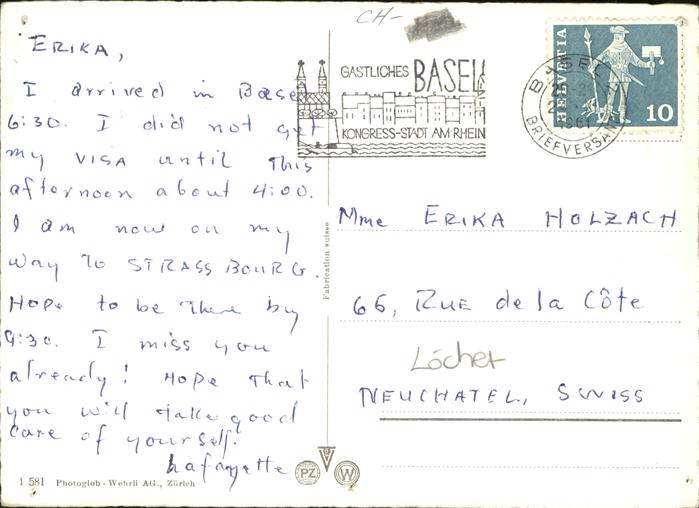 ERIKA,
I arrived in Basel
6:30. I did not get
my VISA until This
afternoon about 4:00.
I am now on my
way To STRASSBOURG.
Hope to be There by
9:30. I miss you
already! Hope That
you will take good
care of yourself.
Lafayette
1 581 Photoglob-Wehrli AG., Zürich
Fabrication suisse
PZ
W
CH-
GASTLICHES BASEL
KONGRESS-STADT AM RHEIN
BASEL 2
BRIEFVERSAND
HELVETIA
10
Mme ERIKA HOLZACH
66, RUE de la Côte
Löcher
NEUCHATEL, SWISS